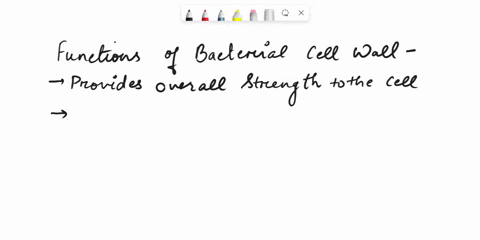 Functions of Bacterial Cell Wall -
→ Provides overall strength to the cell
→